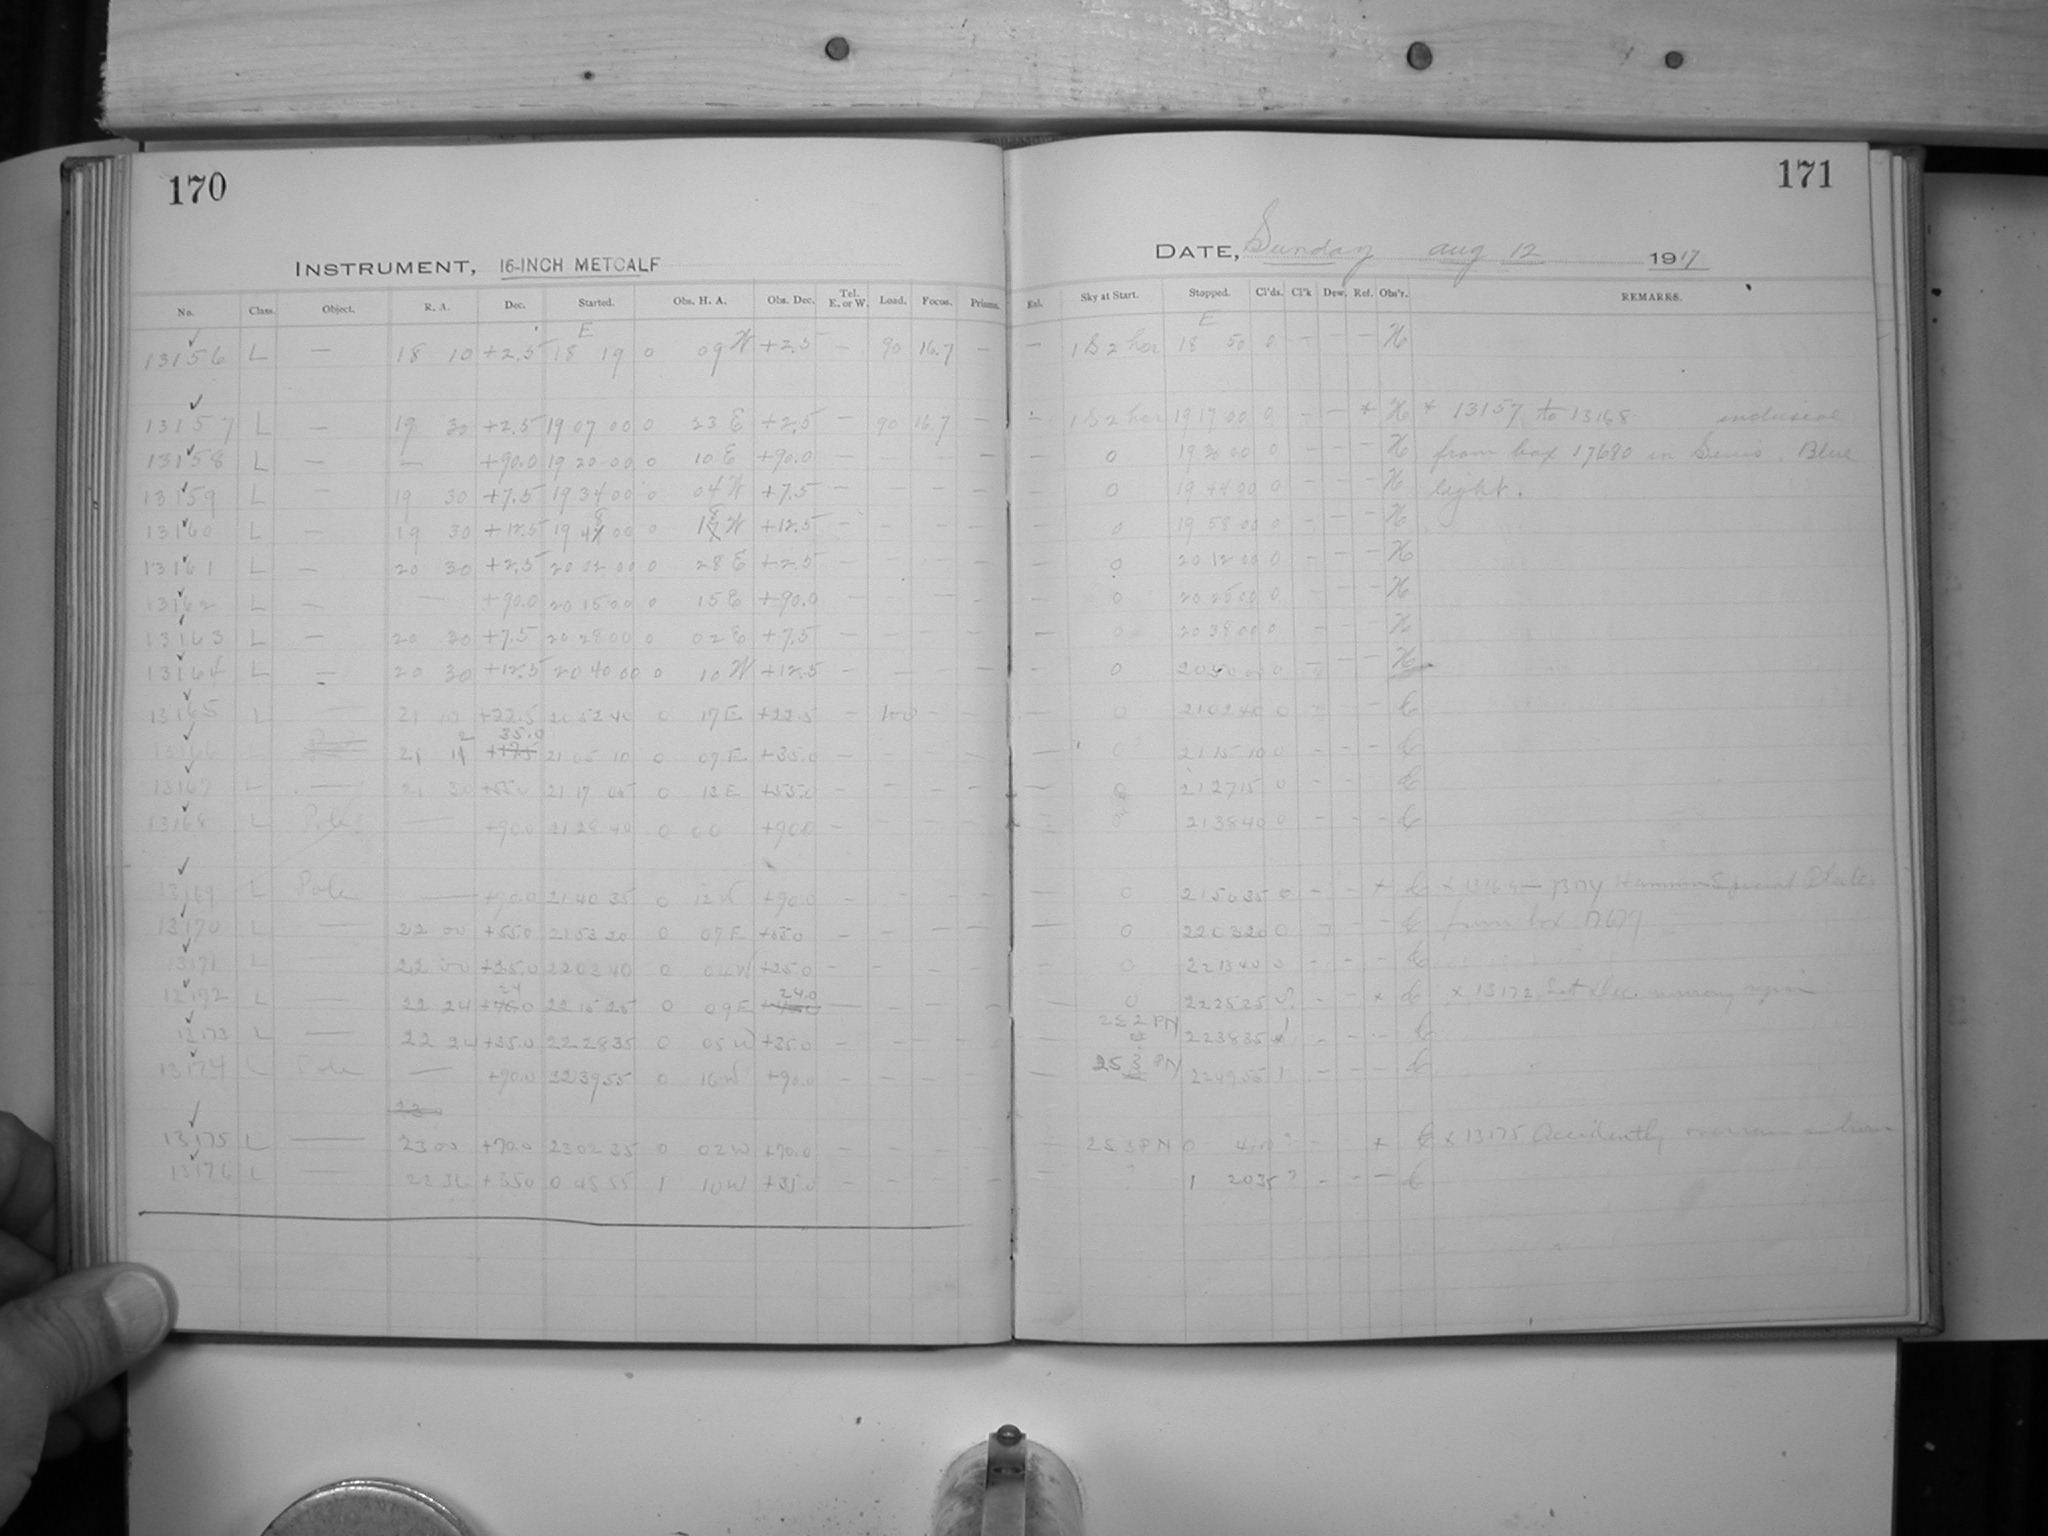 170
171
INSTRUMENT, 16-INCH METCALF
DATE, Sunday Aug 12 1917
No. Class. Object. R. A. Dec. Started. Obs. H. A. Obs. Dec. Tel. E. or W. Load. Focus. Prisms. Enl. Sky at Start. Stopped. Cl'ds. Cl'k Dew. Ref. Obs'r. REMARKS.
E E
13156 L — 18 10 +2.5 18 19 0 09 W +2.5 — 90 16.7 — — 18 50 0 — — — H
13157 L — 19 30 +2.5 19 07 00 0 23 E +2.5 — 90 16.7 — — 19 17 00 0 — — * H * 13157 to 13168 inclusive
13158 L — — +90.0 19 20 00 0 10 E +90.0 — — — — — 0 19 30 00 0 — — — H from box 17680 in Blue
13159 L — 19 30 +7.5 19 34 00 0 04 W +7.5 — — — — — 0 19 44 00 0 — — — H light.
13160 L — 19 30 +12.5 19 48 00 0 18 W +12.5 — — — — — 0 19 58 00 0 — — — H
13161 L — 20 30 +2.5 20 02 00 0 28 E +2.5 — — — — — 0 20 12 00 0 — — — H
13162 L — — +90.0 20 15 00 0 15 E +90.0 — — — — — 0 20 25 00 0 — — — H
13163 L — 20 30 +7.5 20 28 00 0 02 E +7.5 — — — — — 0 20 38 00 0 — — — H
13164 L — 20 30 +12.5 20 40 00 0 10 W +12.5 — — — — — 0 20 50 00 0 — — — H
13165 L — 21 10 +22.5 20 52 40 0 17 E +22.5 — 100 — — — 0 21 02 40 0 — — — C
13166 L 21 12 35.0 21 05 10 0 07 E +35.0 — — — — — 0 21 15 10 0 — — — C
13167 L — 21 30 +55.0 21 17 15 0 12 E +55.0 — — — — — 0 21 27 15 0 — — — C
13168 L Pole — +90.0 21 28 40 0 00 +90.0 — — — — — 0 21 38 40 0 — — — C
13169 L Pole — +90.0 21 40 35 0 12 W +90.0 — — — — — 0 21 50 35 0 — — x C x 13169 — 13174 Hammer Special Plates
13170 L — 22 00 +55.0 21 53 20 0 07 E +55.0 — — — — — 0 22 03 20 0 — — — C from box 17679
13171 L — 22 00 22 03 40 0 04 W — — — — — 0 22 13 40 0 — — — C
L — 22 24 24 22 15 25 0 09 E 24.0 — — — — — 0 22 25 25 — — x C x 13172 Set Dec. wrong again
13173 L — 22 24 +35.0 22 28 35 0 05 W +35.0 — — — — — 2S2PN 22 38 35 — — — C
13174 L Pole — +90.0 22 39 55 0 16 W +90.0 — — — — — 2S3PN 22 49 55 1 — — — C
13175 L — 23 00 +70.0 23 02 35 0 02 W +70.0 — — — — — 2S3PN 0 ? — — x C x 13175 Accidently
13176 L — +35.0 0 45 55 1 10 W +35.0 — — — — — ? 1 20 35 ? — — — C